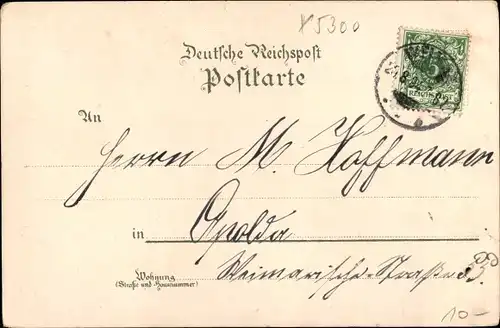 X5300
Deutsche Reichspost
Postkarte
REICHSPOST
An
Herrn M. Hoffmann
in
Apolda
Wohnung
(Straße und Hausnummer)
Weimarische-Straße
10-